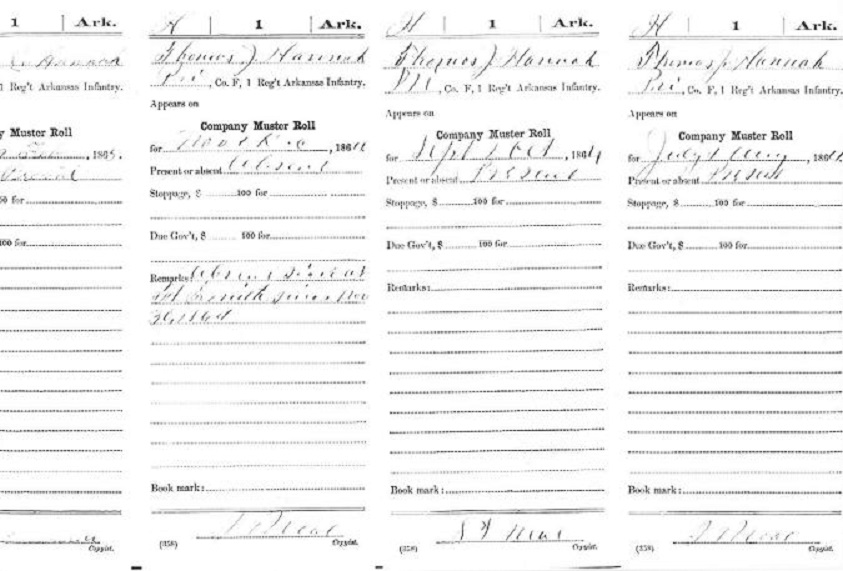 1 | Ark.
Hannah
1 Reg't Arkansas Infantry.
y Muster Roll
, 1865.
00 for
100 for
Copyist.
H | 1 | Ark.
Thomas J Hannah
Pvt, Co. F, 1 Reg't Arkansas Infantry.
Appears on
Company Muster Roll
for Nov & Dec, 1864
Present or absent Absent
Stoppage, $ 100 for
Due Gov't, $ 100 for
Remarks: Absent sick at
Ft Smith since Nov
Book mark:
(358)
Copyist.
H | 1 | Ark.
Thomas J Hannah
Pvt, Co. F, 1 Reg't Arkansas Infantry.
Appears on
Company Muster Roll
for Sept & Oct, 1864
Present or absent Present
Stoppage, $ 100 for
Due Gov't, $ 100 for
Remarks:
Book mark:
(358)
Copyist.
H | 1 | Ark.
Thomas J Hannah
Pvt, Co. F, 1 Reg't Arkansas Infantry.
Appears on
Company Muster Roll
for July & Aug, 1864
Present or absent Present
Stoppage, $ 100 for
Due Gov't, $ 100 for
Remarks:
Book mark:
(358)
Copyist.